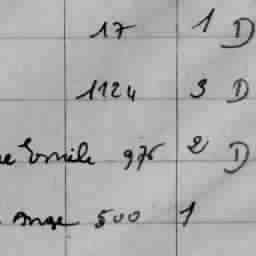 17 1 D
1124 3 D
Emile 976 2 D
Ange 500 1